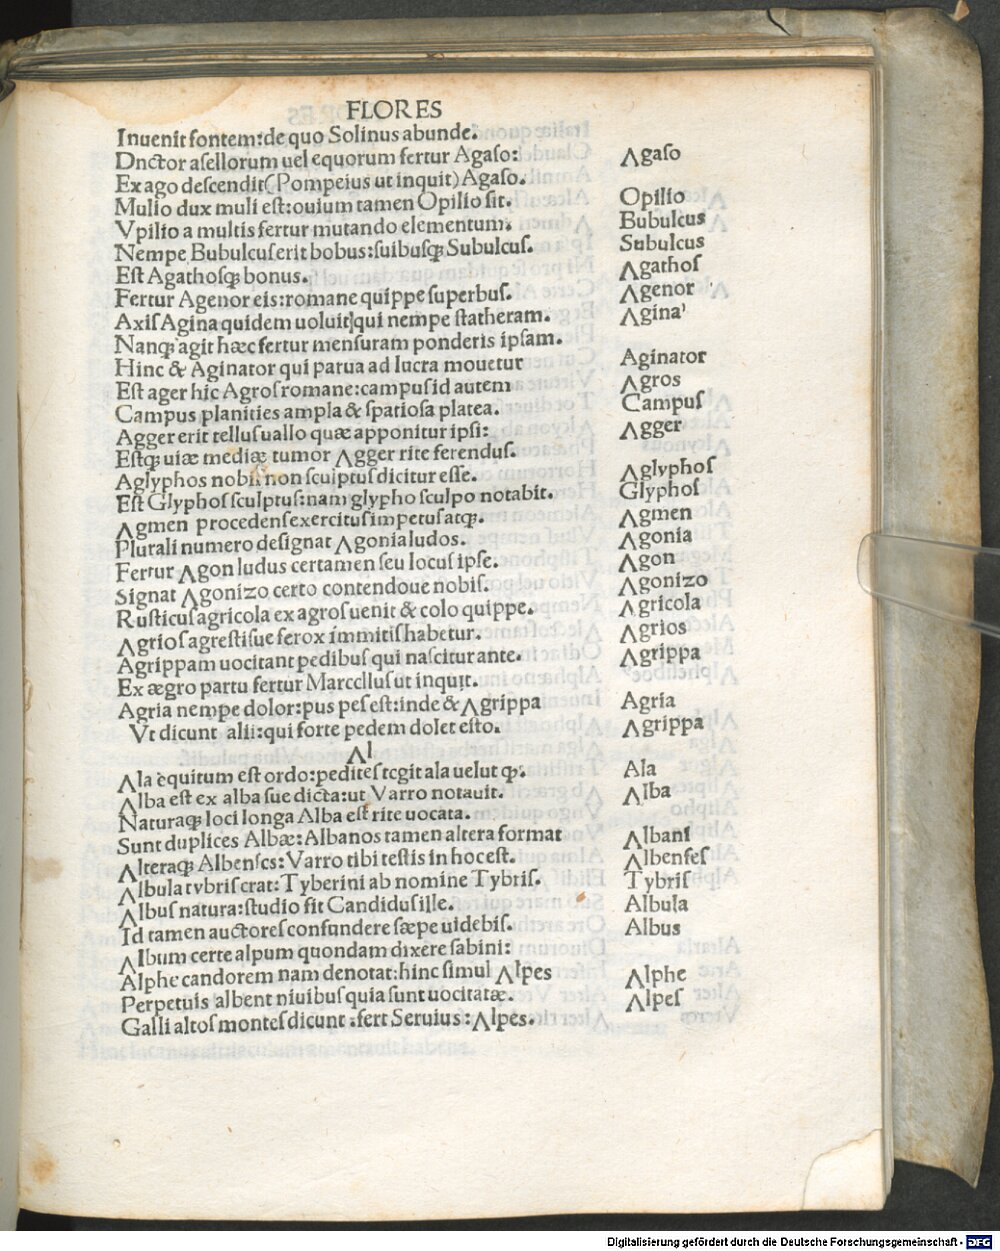 FLORES
Inuenit fontem:de quo Solinus abunde.
Dnctor asellorum uel equorum fertur Agaso: Agaso
Ex ago descendit(Pompeius ut inquit)Agaso.
Mulio dux muli est:ouium tamen Opilio sit. Opilio
Vpilio a multis fertur mutando elementum. Bubulcus
Nempe Bubulcuſ erit bobus:ſuibuſqꝫ Subulcuſ. Subulcus
Eſt Agathoſqꝫ bonus. Agathoſ
Fertur Agenor eis:romane quippe ſuperbuſ. Agenor
Axiſ Agina quidem uoluit qui nempe ſtatheram. Agina
Nanqꝫ agit hæc fertur menſuram ponderis ipſam.
Hinc & Aginator qui parua ad lucra mouetur Aginator
Eſt ager hic Agroſ romane:campuſ id autem Agros
Campus planities ampla & ſpatioſa platea. Campuſ
Agger erit telluſ uallo quæ apponitur ipſi: Agger
Eſtqꝫ uiæ mediæ tumor Agger rite ferendus.
Aglyphos nobiſ non ſculptus dicitur eſſe. Aglyphoſ
Eſt Glyphoſ ſculptuſ:nam glypho ſculpo notabit. Glyphoſ
Agmen procedenſ exercituſ impetuſ atqꝫ. Agmen
Plurali numero deſignat Agonia ludos. Agonia
Fertur Agon ludus certamen ſeu locuſ ipſe. Agon
Signat Agonizo certo contendoue nobiſ. Agonizo
Ruſticuſ agricola ex agroſ uenit & colo quippe. Agricola
Agrioſ agreſtiſ ue ferox immitiſ habetur. Agrios
Agrippam uocitant pedibuſ qui naſcitur ante. Agrippa
Ex ægro partu fertur Marcelluſ ut inquit.
Agria nempe dolor:pus peſ eſt:inde & Agrippa Agria
Vt dicunt alii:qui forte pedem dolet eſto. Agrippa
Al
Ala equitum eſt ordo:pediteſ tegit ala uelut qꝫ. Ala
Alba eſt ex alba ſue dicta:ut Varro notauit. Alba
Naturaqꝫ loci longa Alba eſt rite uocata.
Sunt duplices Albæ:Albanos tamen altera format Albani
Alteraqꝫ Albenſes:Varro tibi teſtis in hoc eſt. Albenſeſ
Albula tybriſ erat:Tyberini ab nomine Tybriſ. Tybriſ
Albuſ natura:ſtudio fit Candiduſ ille. Albula
Id tamen auctoreſ confundere ſæpe uidebiſ. Albus
Album certe alpum quondam dixere ſabini:
Alphe candorem nam denotat:hinc ſimul Alpes Alphe
Perpetuis albent niuibuſ quia ſunt uocitatæ. Alpeſ
Galli altoſ monteſ dicunt:fert Seruius:Alpes.
Digitalisierung gefördert durch die Deutsche Forschungsgemeinschaft - DFG